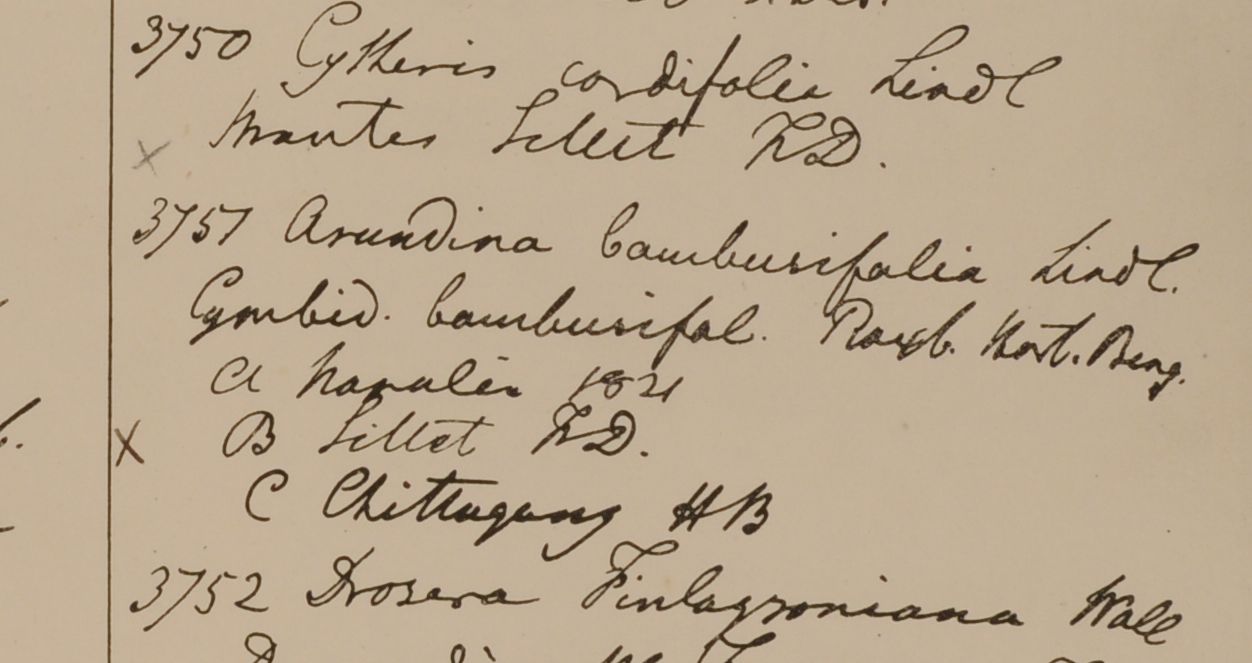 3750 Cytheris cordifolia Lindl
Montes Sillet F.D.
x
3751 Arundina bambusifolia Lindl.
Cymbid. bambusifol. Roxb. Hort. Beng.
A Napalia 1821
x B Sillet F.D.
C Chittagong HB
3752 Drosera Finlaysoniana Wall